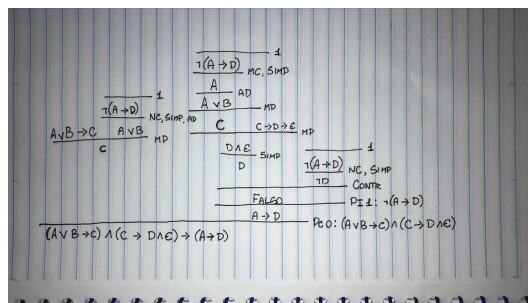 1
¬(A→D) MC, SIMP
A AD
1
¬(A→D) NC, SIMP, AD
A∨B MD
A∨B→C A∨B MD
C C→D→E MD
C
D∧E SIMP
D
1
¬(A→D) NC, SIMP
¬D CONTR
FALSO PI1: ¬(A→D)
A→D PC0: (A∨B→C)∧(C→D∧E)
(A∨B→C)∧(C→D∧E)→(A→D)